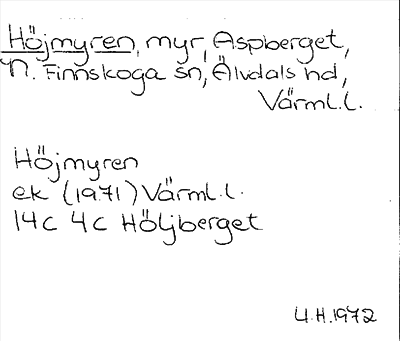 Höjmyren, myr, Aspberget,
N. Finnskoga sn, Älvdals hd,
Värml.l.
Höjmyren
ek (1971) Värml.l.
14c 4c Höljberget
U.H. 1972